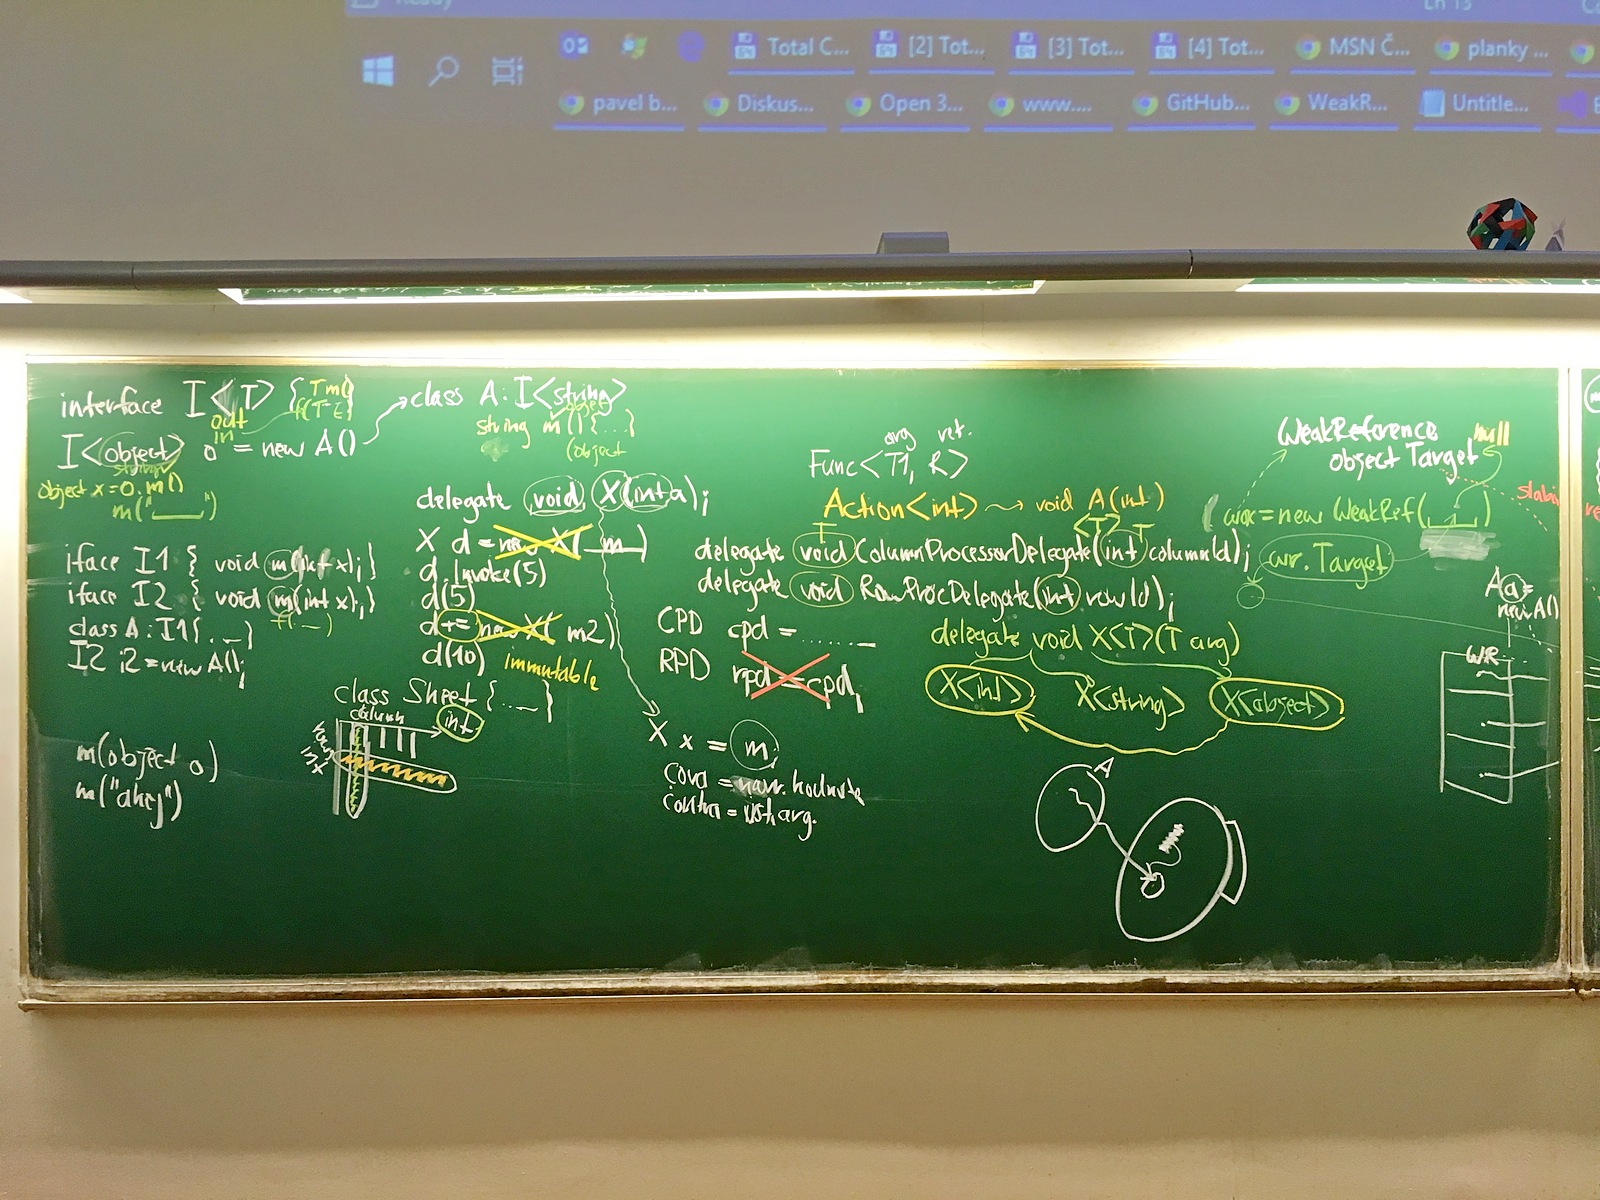 Ready
Ln 13
Total C...
[2] Tot...
[3] Tot...
[4] Tot...
MSN Č...
planky ...
pavel b...
Diskus...
Open 3...
www....
GitHub...
WeakR...
Untitle...
interface I<T> {
T m()
out
in
class A: I<string>
string m() {...}
(object
I<object> o = new A()
string
object x = o.m()
m("___")
iface I1 { void m(int x); }
iface I2 { void m(int x); }
f(...)
class A: I1 {...}
I2 i2 = new A();
m(object o)
m("ahoj")
delegate void X(int a);
X d = new X(m)
d.Invoke(5)
d(5)
d += new X(m2)
d(10)
immutable
class Sheet {...}
column
int
X x = m;
cova = návr. hodnota
contra = vst. arg.
arg ret.
Func<T1, R>
Action<int> → void A(int)
T <T> T
delegate void ColumnProcessorDelegate(int columnId);
delegate void RowProcDelegate(int rowId);
CPD cpd = ......
RPD rpd = cpd;
delegate void X<T>(T arg)
X<int> X<string> X<object>
A
WeakReference
object Target
null
= new WeakRef(___)
wr.Target
A a =
new A()
WR